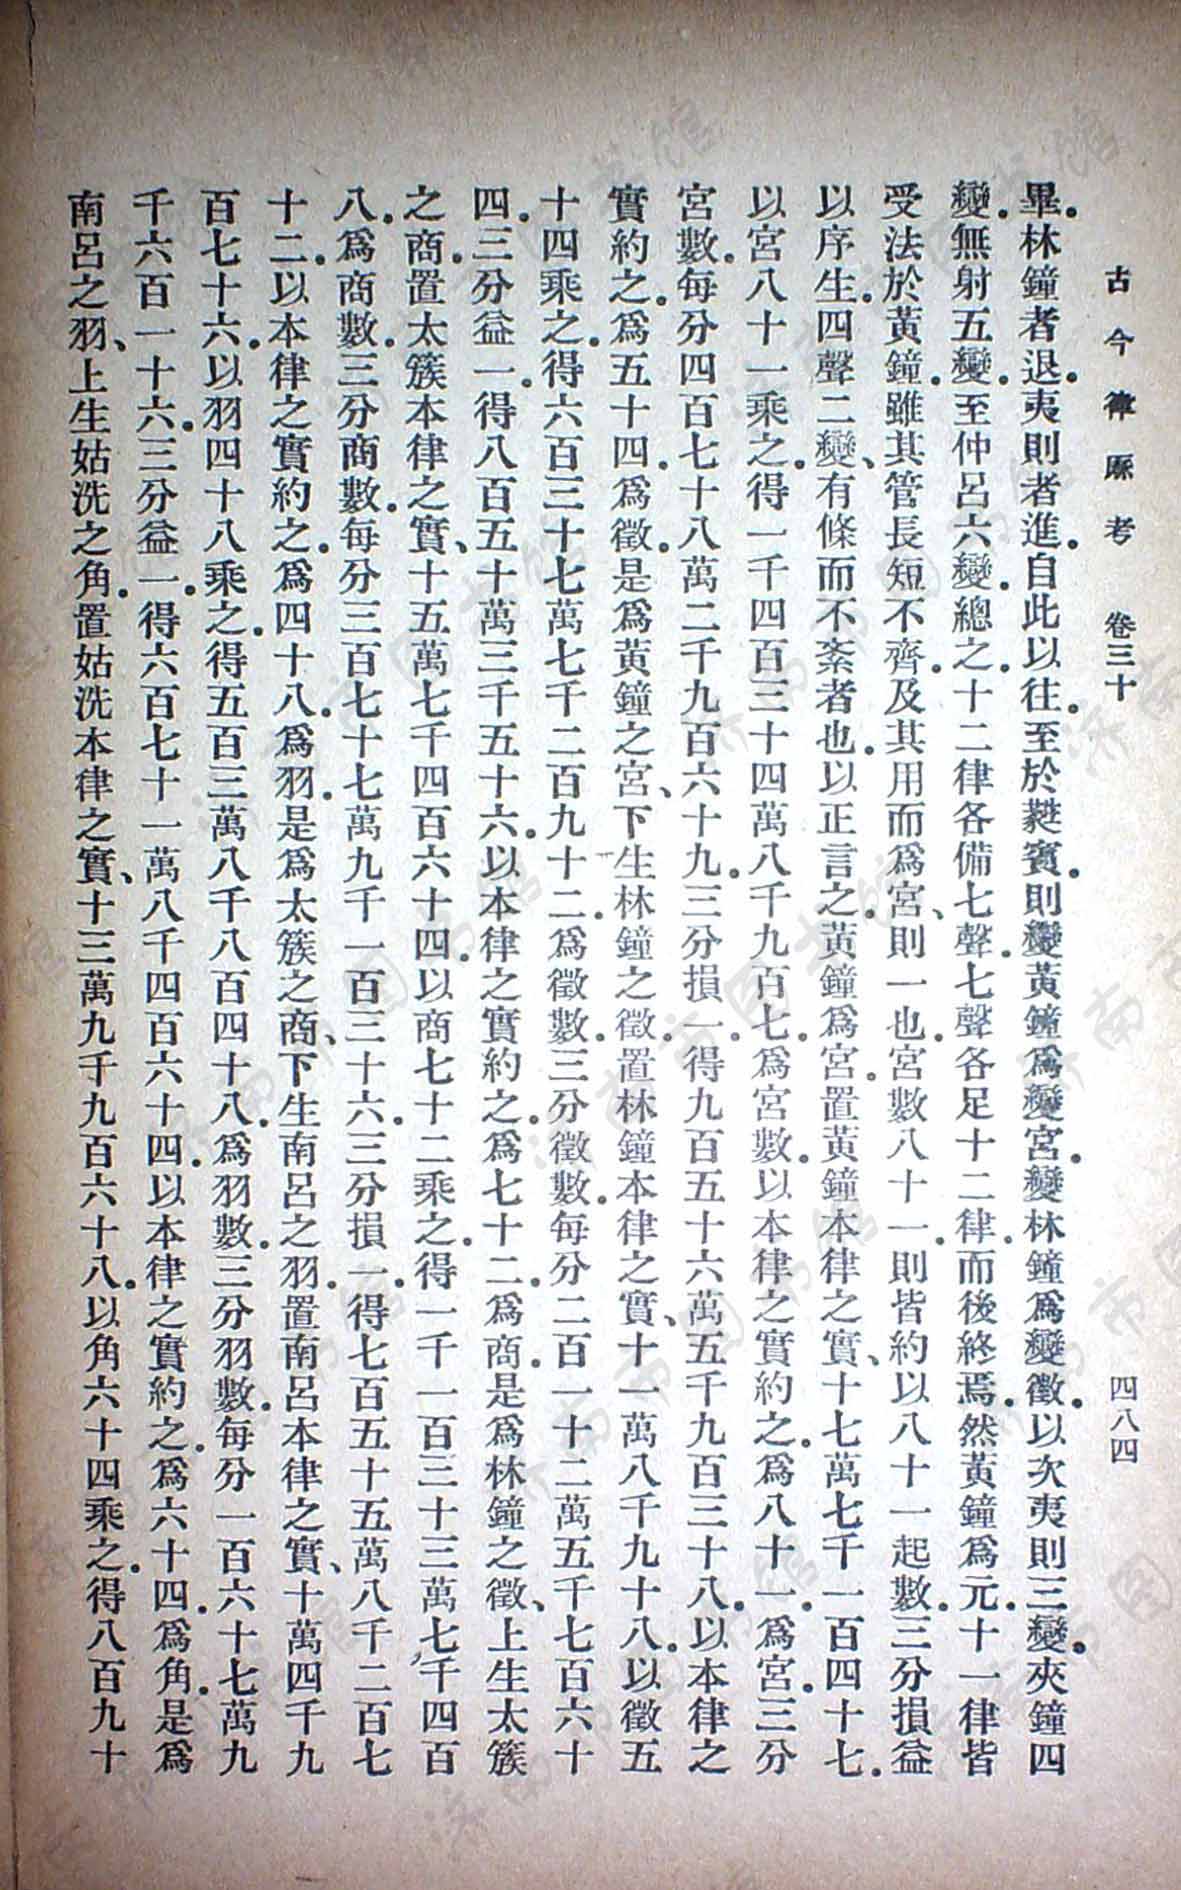 古今律厤考 卷三十 四八四
畢。林鐘者退。夷則者進。自此以往。至於蕤賓。則變黃鐘爲變宮。變林鐘爲變徵。以次夷則三變。夾鐘四
變。無射五變。至仲呂六變。總之。十二律各備七聲。七聲各足十二律。而後終焉。然黃鐘爲元。十一律皆
受法於黃鐘。雖其管長短不齊。及其用而爲宮、則一也。宮數八十一。則皆約以八十一起數。三分損益
以序生。四聲二變、有條而不紊者也。以正言之。黃鐘爲宮。置黃鐘本律之實、十七萬七千一百四十七。
以宮八十一乘之。得一千四百三十四萬八千九百七。爲宮數。以本律之實約之。爲八十一。爲宮。三分
宮數。每分四百七十八萬二千九百六十九。三分損一。得九百五十六萬五千九百三十八。以本律之
實約之。爲五十四。爲徵。是爲黃鐘之宮、下生林鐘之徵。置林鐘本律之實、十一萬八千九十八。以徵五
十四乘之。得六百三十七萬七千二百九十二。爲徵數。三分徵數。每分二百一十二萬五千七百六十
四。三分益一。得八百五十萬三千五十六。以本律之實約之。爲七十二。爲商。是爲林鐘之徵、上生太簇
之商。置太簇本律之實、十五萬七千四百六十四。以商七十二乘之。得一千一百三十三萬七千四百
八。爲商數。三分商數。每分三百七十七萬九千一百三十六。三分損一。得七百五十五萬八千二百七
十二。以本律之實約之。爲四十八。爲羽。是爲太簇之商、下生南呂之羽。置南呂本律之實、十萬四千九
百七十六。以羽四十八乘之。得五百三萬八千八百四十八。爲羽數。三分羽數。每分一百六十七萬九
千六百一十六。三分益一。得六百七十一萬八千四百六十四。以本律之實約之。爲六十四。爲角。是爲
南呂之羽、上生姑洗之角。置姑洗本律之實、十三萬九千九百六十八。以角六十四乘之。得八百九十